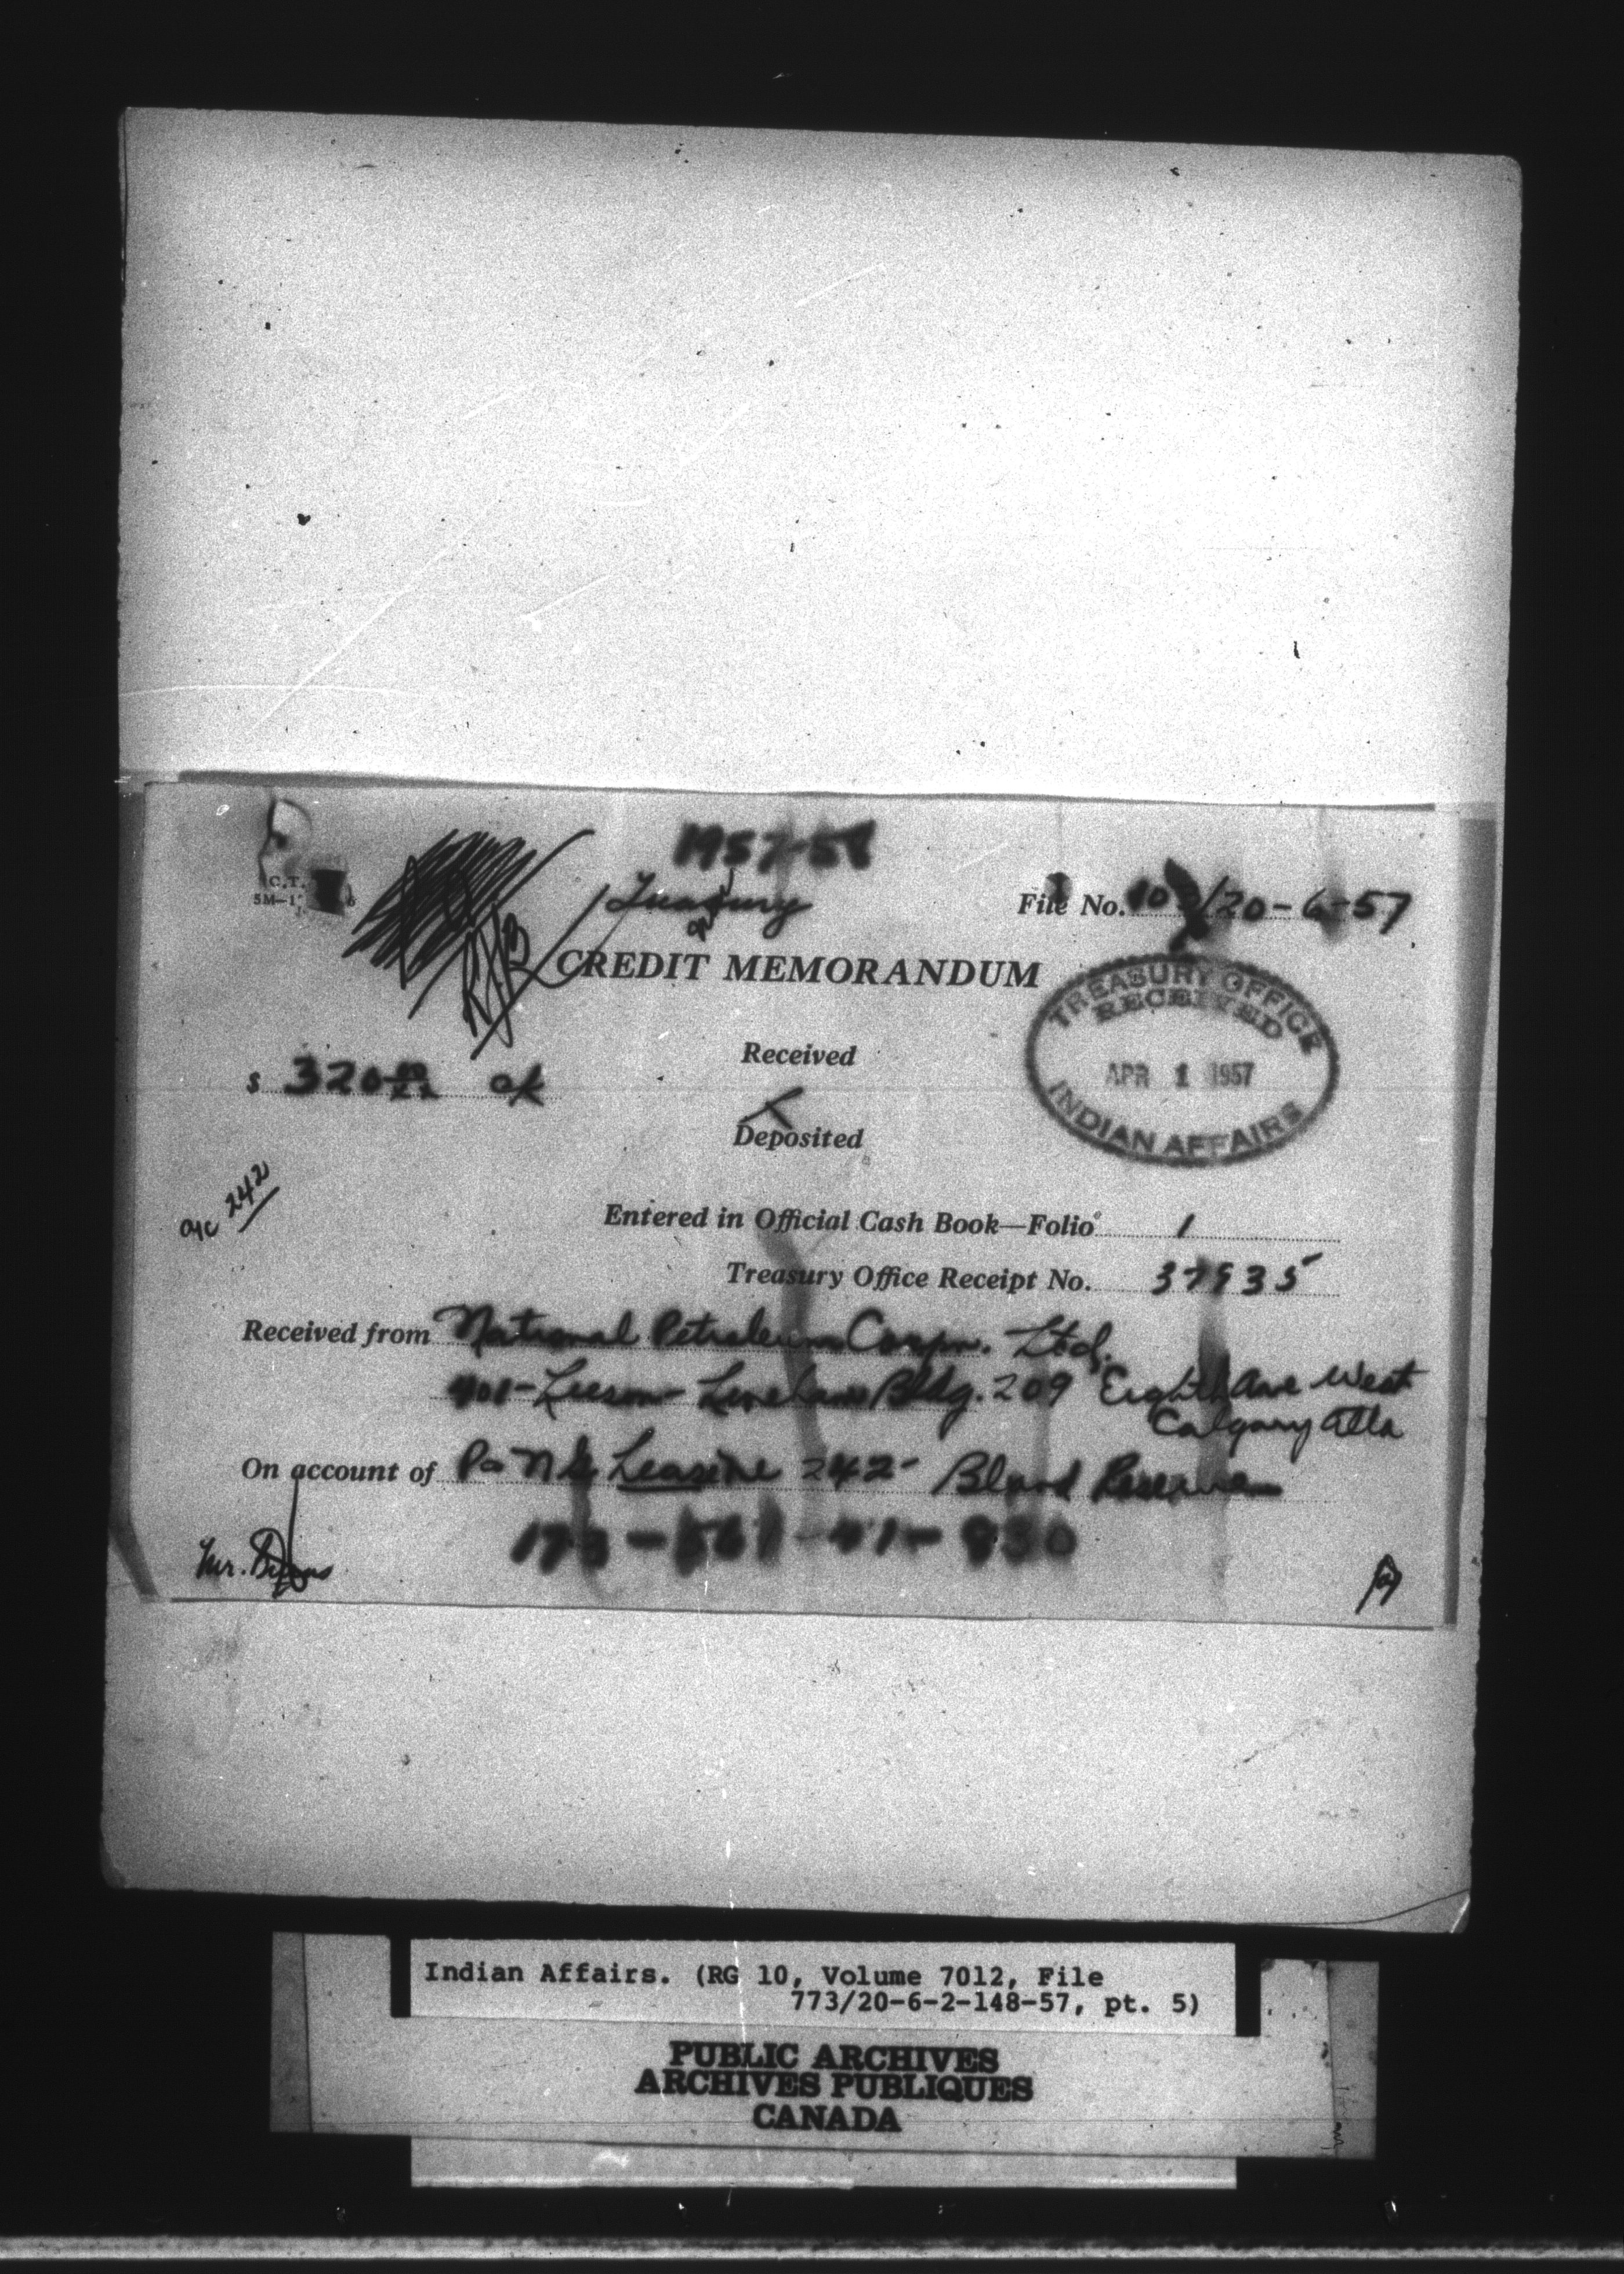 1957-58
C.T.
5M-1
Treasury
File No. 103/20-6-57
CREDIT MEMORANDUM
TREASURY OFFICE
RECEIVED
APR 1 1957
INDIAN AFFAIRS
Received
$ 320 00/xx ck
Deposited
a/c 242
Entered in Official Cash Book—Folio 1
Treasury Office Receipt No. 37935
Received from National Petroleum Corpn. Ltd.
401-Leeson-Lineham Bldg. 209 Eighth Ave West
Calgary Alta
On account of P & N G Lease 242- Blood Reserve
Mr.
Indian Affairs. (RG 10, Volume 7012, File
773/20-6-2-148-57, pt. 5)
PUBLIC ARCHIVES
ARCHIVES PUBLIQUES
CANADA